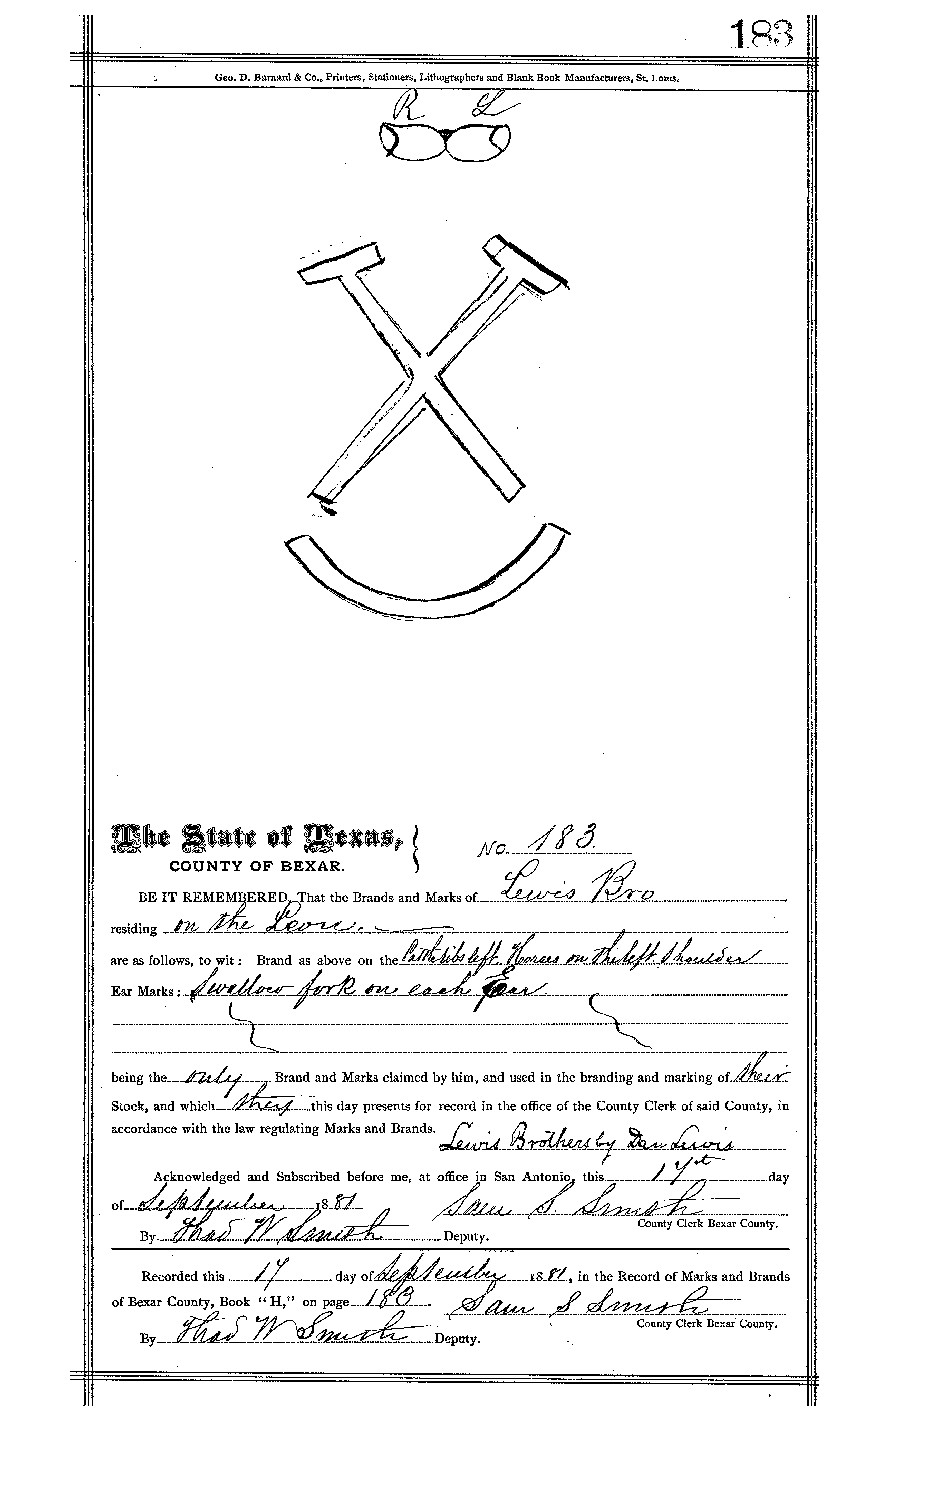 183
Geo. D. Barnard & Co., Printers, Stationers, Lithographers and Blank Book Manufacturers, St. Louis.
R L
The State of Texas,
COUNTY OF BEXAR.
No. 183.
BE IT REMEMBERED, That the Brands and Marks of Lewis Bro
residing on the Leon.
are as follows, to wit: Brand as above on the left Horses on the left Shoulder
Ear Marks: Swallow fork on each Ear
being the only Brand and Marks claimed by him, and used in the branding and marking of their
Stock, and which they this day presents for record in the office of the County Clerk of said County, in
accordance with the law regulating Marks and Brands.
Lewis Brothers by Dan Lewis
Acknowledged and Subscribed before me, at office in San Antonio, this 17th day
of September 1881 Sam S Smith
County Clerk Bexar County.
By Thad W Smith Deputy.
Recorded this 17 day of September 1881, in the Record of Marks and Brands
of Bexar County, Book "H," on page 183 Sam S Smith
County Clerk Bexar County.
By Thad W Smith Deputy.